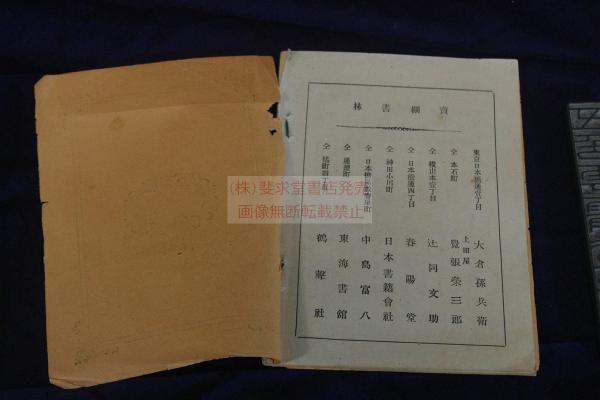 賣捌書林
東京日本橋通壹丁目 大倉孫兵衛
仝 本石町 上田屋 覺張榮三郎
仝 横山本壹丁目 辻岡文助
仝 日本橋通四丁目 春陽堂
仝 神田小川町 日本書籍會社
仝 日本橋 町 中島富八
仝 通 町 東海書舘
仝 橘町四丁目 鶴聲社
(株)斐求堂書店発売
画像無断転載禁止